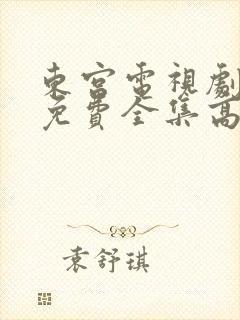 東宮電視劇
免費全集高
袁舒琪